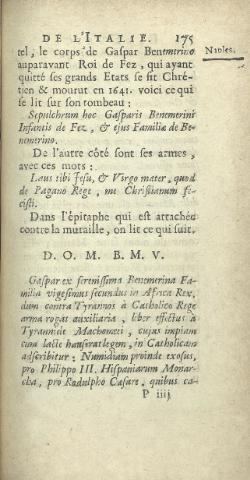 DE L'ITALIE. 175
tel, le corps de Gaspar Benemerino
auparavant Roi de Fez, qui ayant
quitté ses grands Etats se fit Chré-
tien & mourut en 1641. voici ce qui
se lit sur son tombeau :
Naples.
Sepulchrum hoc Gasparis Benemerini
Infantis de Fez, & ejus Familiæ de Be-
nemerino.
De l'autre côté sont ses armes,
avec ces mots :
Laus tibi Jesu, & Virgo mater, quod
de Pagano Rege, me Christianum fe-
cisti.
Dans l'épitaphe qui est attachée
contre la muraille, on lit ce qui suit.
D. O. M. B. M. V.
Gaspar ex serenissima Benemerina Fa-
milia vigesimus secundus in Africa Rex,
dum contra Tyrannos à Catholico Rege
arma rogat auxiliaria, liber effectus à
Tyrannide Machometi, cujus impiam
cum lacte hauserat legem, in Catholicam
adscribitur : Numidiam proinde exosus,
pro Philippo III. Hispaniarum Monar-
cha, pro Rodulpho Cæsare, quibus ca-
P iiij